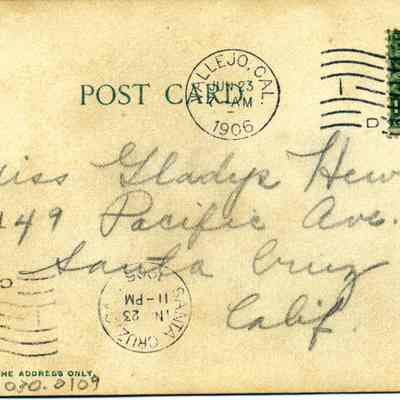 VALLEJO, CAL.
JUN 23
7-AM
1906
1
D
POST CARD.
Miss Gladys Hew
149 Pacific Ave.
Santa Cruz
Calif.
SANTA CRUZ
JUN 23
11-PM
1906
THE ADDRESS ONLY.
030.0109